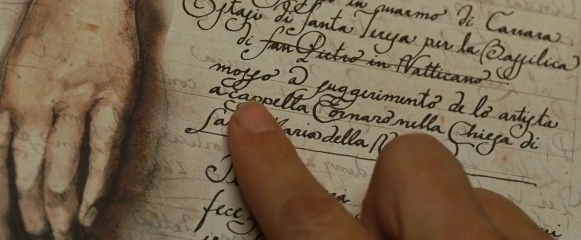 in marmo di Carrara
Estasi di Santa Teresa per la Bassilica
di San Pietro in Vatticano
mosso à suggerimento de lo artista
a cappella Cornaro nella Chiesa di
Maria della
fece